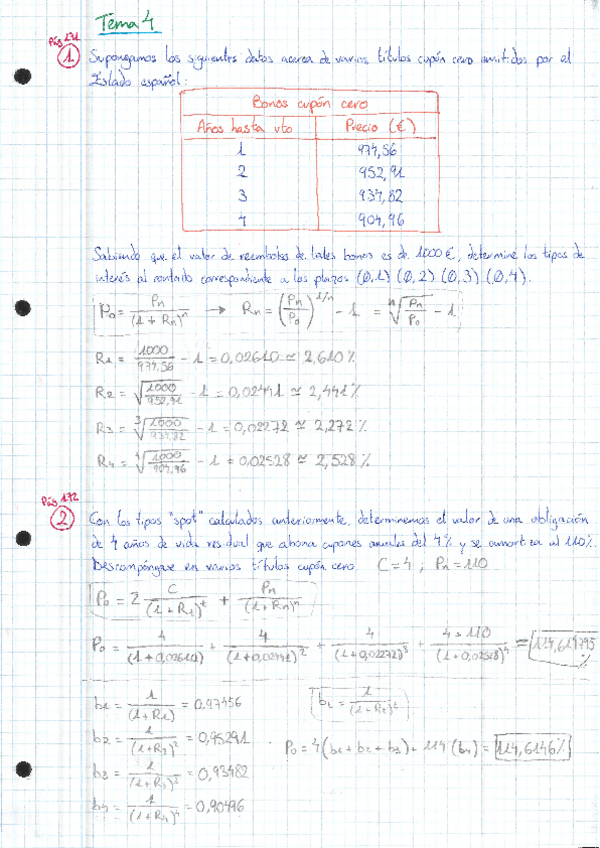 Tema 4
Pág 171
1 Supongamos los siguientes datos acerca de varios títulos cupón cero emitidos por el
Estado español:
Bonos cupón cero
Años hasta vto Precio (€)
1 974,56
2 952,91
3 934,82
4 904,96
Sabiendo que el valor de reembolso de tales bonos es de 1000 €, determine los tipos de
interés al contado correspondiente a los plazos (0,1) (0,2) (0,3) (0,4).
P₀ = Pn / (1 + Rn)^n → Rn = (Pn / P₀)^1/n - 1 = ⁿ√(Pn / P₀) - 1
R1 = 1000 / 974,56 - 1 = 0,02610 ≃ 2,610 %
R2 = √(1000 / 952,91) - 1 = 0,02441 ≃ 2,441 %
R3 = ³√(1000 / 934,82) - 1 = 0,02272 ≃ 2,272 %
R4 = ⁴√(1000 / 904,96) - 1 = 0,02528 ≃ 2,528 %
Pág 172
2 Con los tipos "spot" calculados anteriormente, determinemos el valor de una obligación
de 4 años de vida residual que abona cupones anuales del 4% y se amortiza al 110%.
Descompóngase en varios títulos cupón cero. C = 4 ; Pn = 110
P₀ = Σ C / (1 + Rt)^t + Pn / (1 + Rn)^n
P₀ = 4 / (1+0,02610) + 4 / (1+0,02441)² + 4 / (1+0,02272)³ + 4 + 110 / (1+0,02528)⁴ = 114,614795 %
b1 = 1 / (1+R1) = 0,97456 bt = 1 / (1+Rt)^t
b2 = 1 / (1+R2)² = 0,95291
P₀ = 4 (b1 + b2 + b3) + 114 (b4) = 114,6146 %
b3 = 1 / (1+R3)³ = 0,93482
b4 = 1 / (1+R4)⁴ = 0,90496